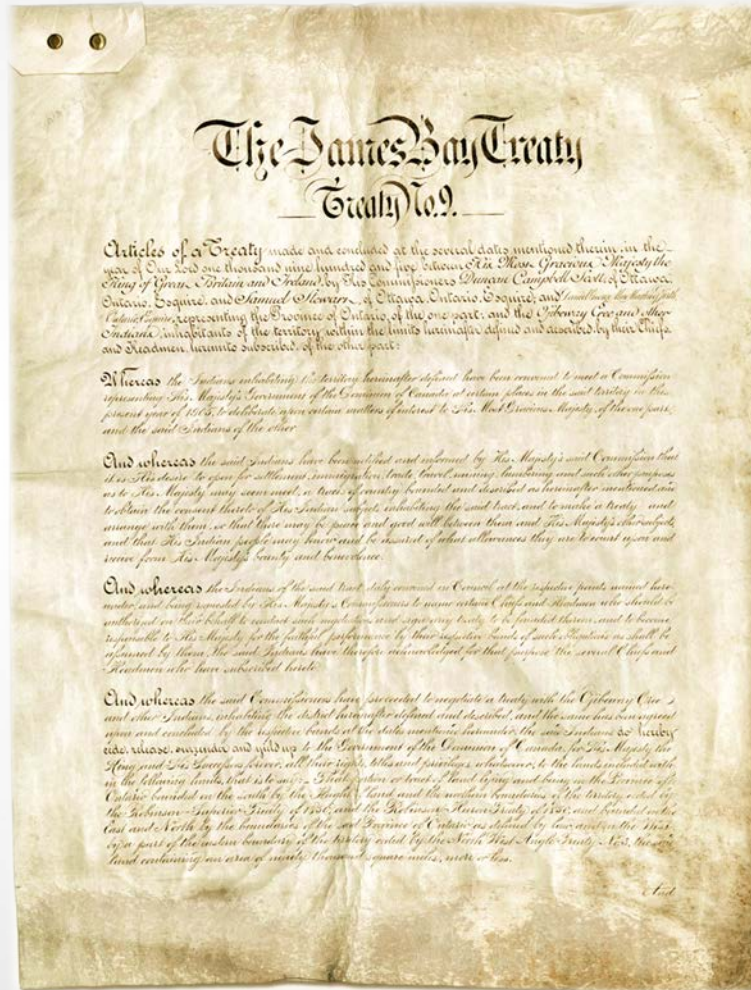 The James Bay Treaty
Treaty No. 9.
Articles of a Treaty made and concluded at the several dates mentioned therein, in the
year of Our Lord one thousand nine hundred and five between His Most Gracious Majesty the
King of Great Britain and Ireland, by His Commissioners Duncan Campbell Scott, of Ottawa,
Ontario, Esquire, and Samuel Stewart, of Ottawa, Ontario, Esquire; and
Ontario, Esquire, representing the Province of Ontario, of the one part; and the Ojibeway Cree and other
Indians, inhabitants of the territory within the limits hereinafter defined and described, by their Chiefs,
and Headmen hereunto subscribed, of the other part:
Whereas the Indians inhabiting the territory hereinafter defined have been convened to meet a Commission
representing His Majesty's Government of the Dominion of Canada at certain places in the said territory in this
present year of 1905, to deliberate upon certain matters of interest to His Most Gracious Majesty, of the one part,
and the said Indians of the other
And whereas the said Indians have been notified and informed by His Majesty's said Commission that
it is His desire to open for settlement, immigration, trade, travel, mining, lumbering and such other purposes
as to His Majesty may seem meet, a tract of country bounded and described as hereinafter mentioned, and
to obtain the consent thereto of His Indian subjects inhabiting the said tract, and to make a treaty and
arrange with them, so that there may be peace and good will between them and His Majesty's other subjects,
and that His Indian people may know and be assured of what allowances they are to count upon and
receive from His Majesty's bounty and benevolence.
And whereas the Indians of the said tract, duly convened in Council at the respective points named here-
under, and being requested by His Majesty's Commissioners to name certain Chiefs and Headmen who should be
authorized on their behalf to conduct such negotiations and sign any treaty to be founded thereon, and to become
responsible to His Majesty for the faithful performance by their respective bands of such obligations as shall be
assumed by them, the said Indians have therefore acknowledged for that purpose the several Chiefs and
Headmen who have subscribed hereto.
And whereas the said Commissioners have proceeded to negotiate a treaty with the Ojibeway, Cree
and other Indians, inhabiting the district hereinafter defined and described, and the same has been agreed
upon and concluded by the respective bands at the dates mentioned hereunder, the said Indians do hereby
cede, release, surrender and yield up to the Government of the Dominion of Canada, for His Majesty the
King and His Successors forever, all their rights, titles and privileges whatsoever, to the lands included within
the following limits, that is to say:- That portion or tract of land lying and being in the Province of
Ontario bounded on the south by the Height of Land and the northern boundaries of the territory ceded by
the Robinson-Superior Treaty of 1850, and the Robinson-Huron Treaty of 1850, and bounded on the
East and North by the boundaries of the said Province of Ontario as defined by law, and on the West
by a part of the eastern boundary of the territory ceded by the North West Angle Treaty No. 3; the said
land containing an area of ninety thousand square miles, more or less.
And